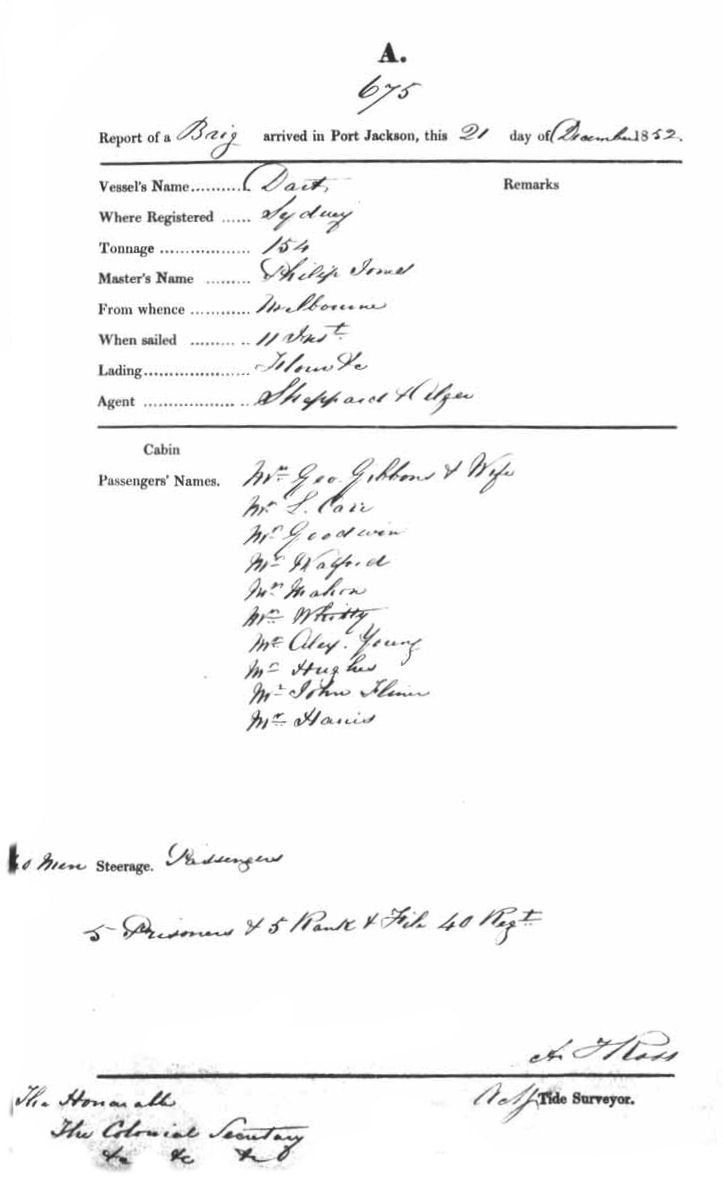 A.
675
Report of a Brig arrived in Port Jackson, this 21 day of December 1852.
Vessel's Name.......... Dart Remarks
Where Registered ...... Sydney
Tonnage .................. 154
Master's Name ......... Philip Jones
From whence ............ Melbourne
When sailed ......... .. 11 Inst
Lading..................... Flour &c
Agent .................. .. Sheppard & Alger
Cabin
Passengers' Names. Mr. Geo. Gibbons & Wife
Mr L. Carr
Mr Goodwin
Mr Walford
Mr Mahon
Mr Whitty
Mr Alex. Young
Mr Hughes
Mr John
Mr Harris
Men Steerage. Passengers
5 Prisoners & 5 Rank & File 40 Regt
Ross
Actg Tide Surveyor.
The Honorable
The Colonial Secretary
&c &c &c